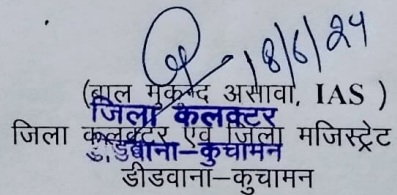 18/6/24
(बाल मुकुन्द असावा, IAS )
जिला कलक्टर
जिला कलक्टर एवं जिला मजिस्ट्रेट
डीडवाना-कुचामन
डीडवाना-कुचामन